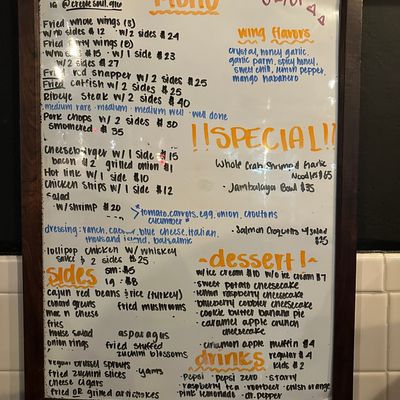 IG @creole.soul.
Menu
Fried whole wings (3)
w/no sides $12 · w/2 sides $24
Fried wings (8)
w/no $15 · w/1 side $23
w/2 sides $27
Fried red snapper w/2 sides $25
Fried catfish w/2 sides $25
Ribeye steak w/2 sides $40
medium rare · medium · medium well · well done
Pork chops w/2 sides $30
smothered $35
Cheeseburger w/1 side $15
bacon $2 grilled onion $1
Hot link w/1 side $10
Chicken strips w/1 side $12
Salad
· w/shrimp $20
> tomato, carrots, egg, onion, croutons
cucumber
dressing: ranch, blue cheese, italian,
thousand island, balsamic
· lollipop chicken w/whiskey
sauce & 2 sides $25
sides
sm: $5
lg: $8
cajun red beans & rice (turkey)
collard greens
fried mushrooms
mac n cheese
fries
house salad
asparagus
onion rings
fried stuffed
zucchini blossoms
vegan brussel sprouts
· yams
fried zucchini slices
cheese cigars
fried OR grilled artichokes
wing flavors
crystal, honey garlic,
garlic parm, spicy honey,
sweet chili, lemon pepper,
mango habanero
!!SPECIAL!!
Whole Crab Shrimp & Garlic
Noodles $65
· Jambalaya Bowl $35
· Salmon Croquetts w/salad
$25
~dessert!~
w/ice cream $10 w/o ice cream $7
· sweet potato cheesecake
· lemon raspberry cheesecake
· blueberry cobbler cheesecake
· cookie butter banana pie
· caramel apple crunch
cheesecake
· cinnamon apple muffin $4
drinks
regular $4
kids $2
· pepsi · pepsi zero · starry
· raspberry tea · rootbeer · crush orange
· pink lemonade · dr. pepper